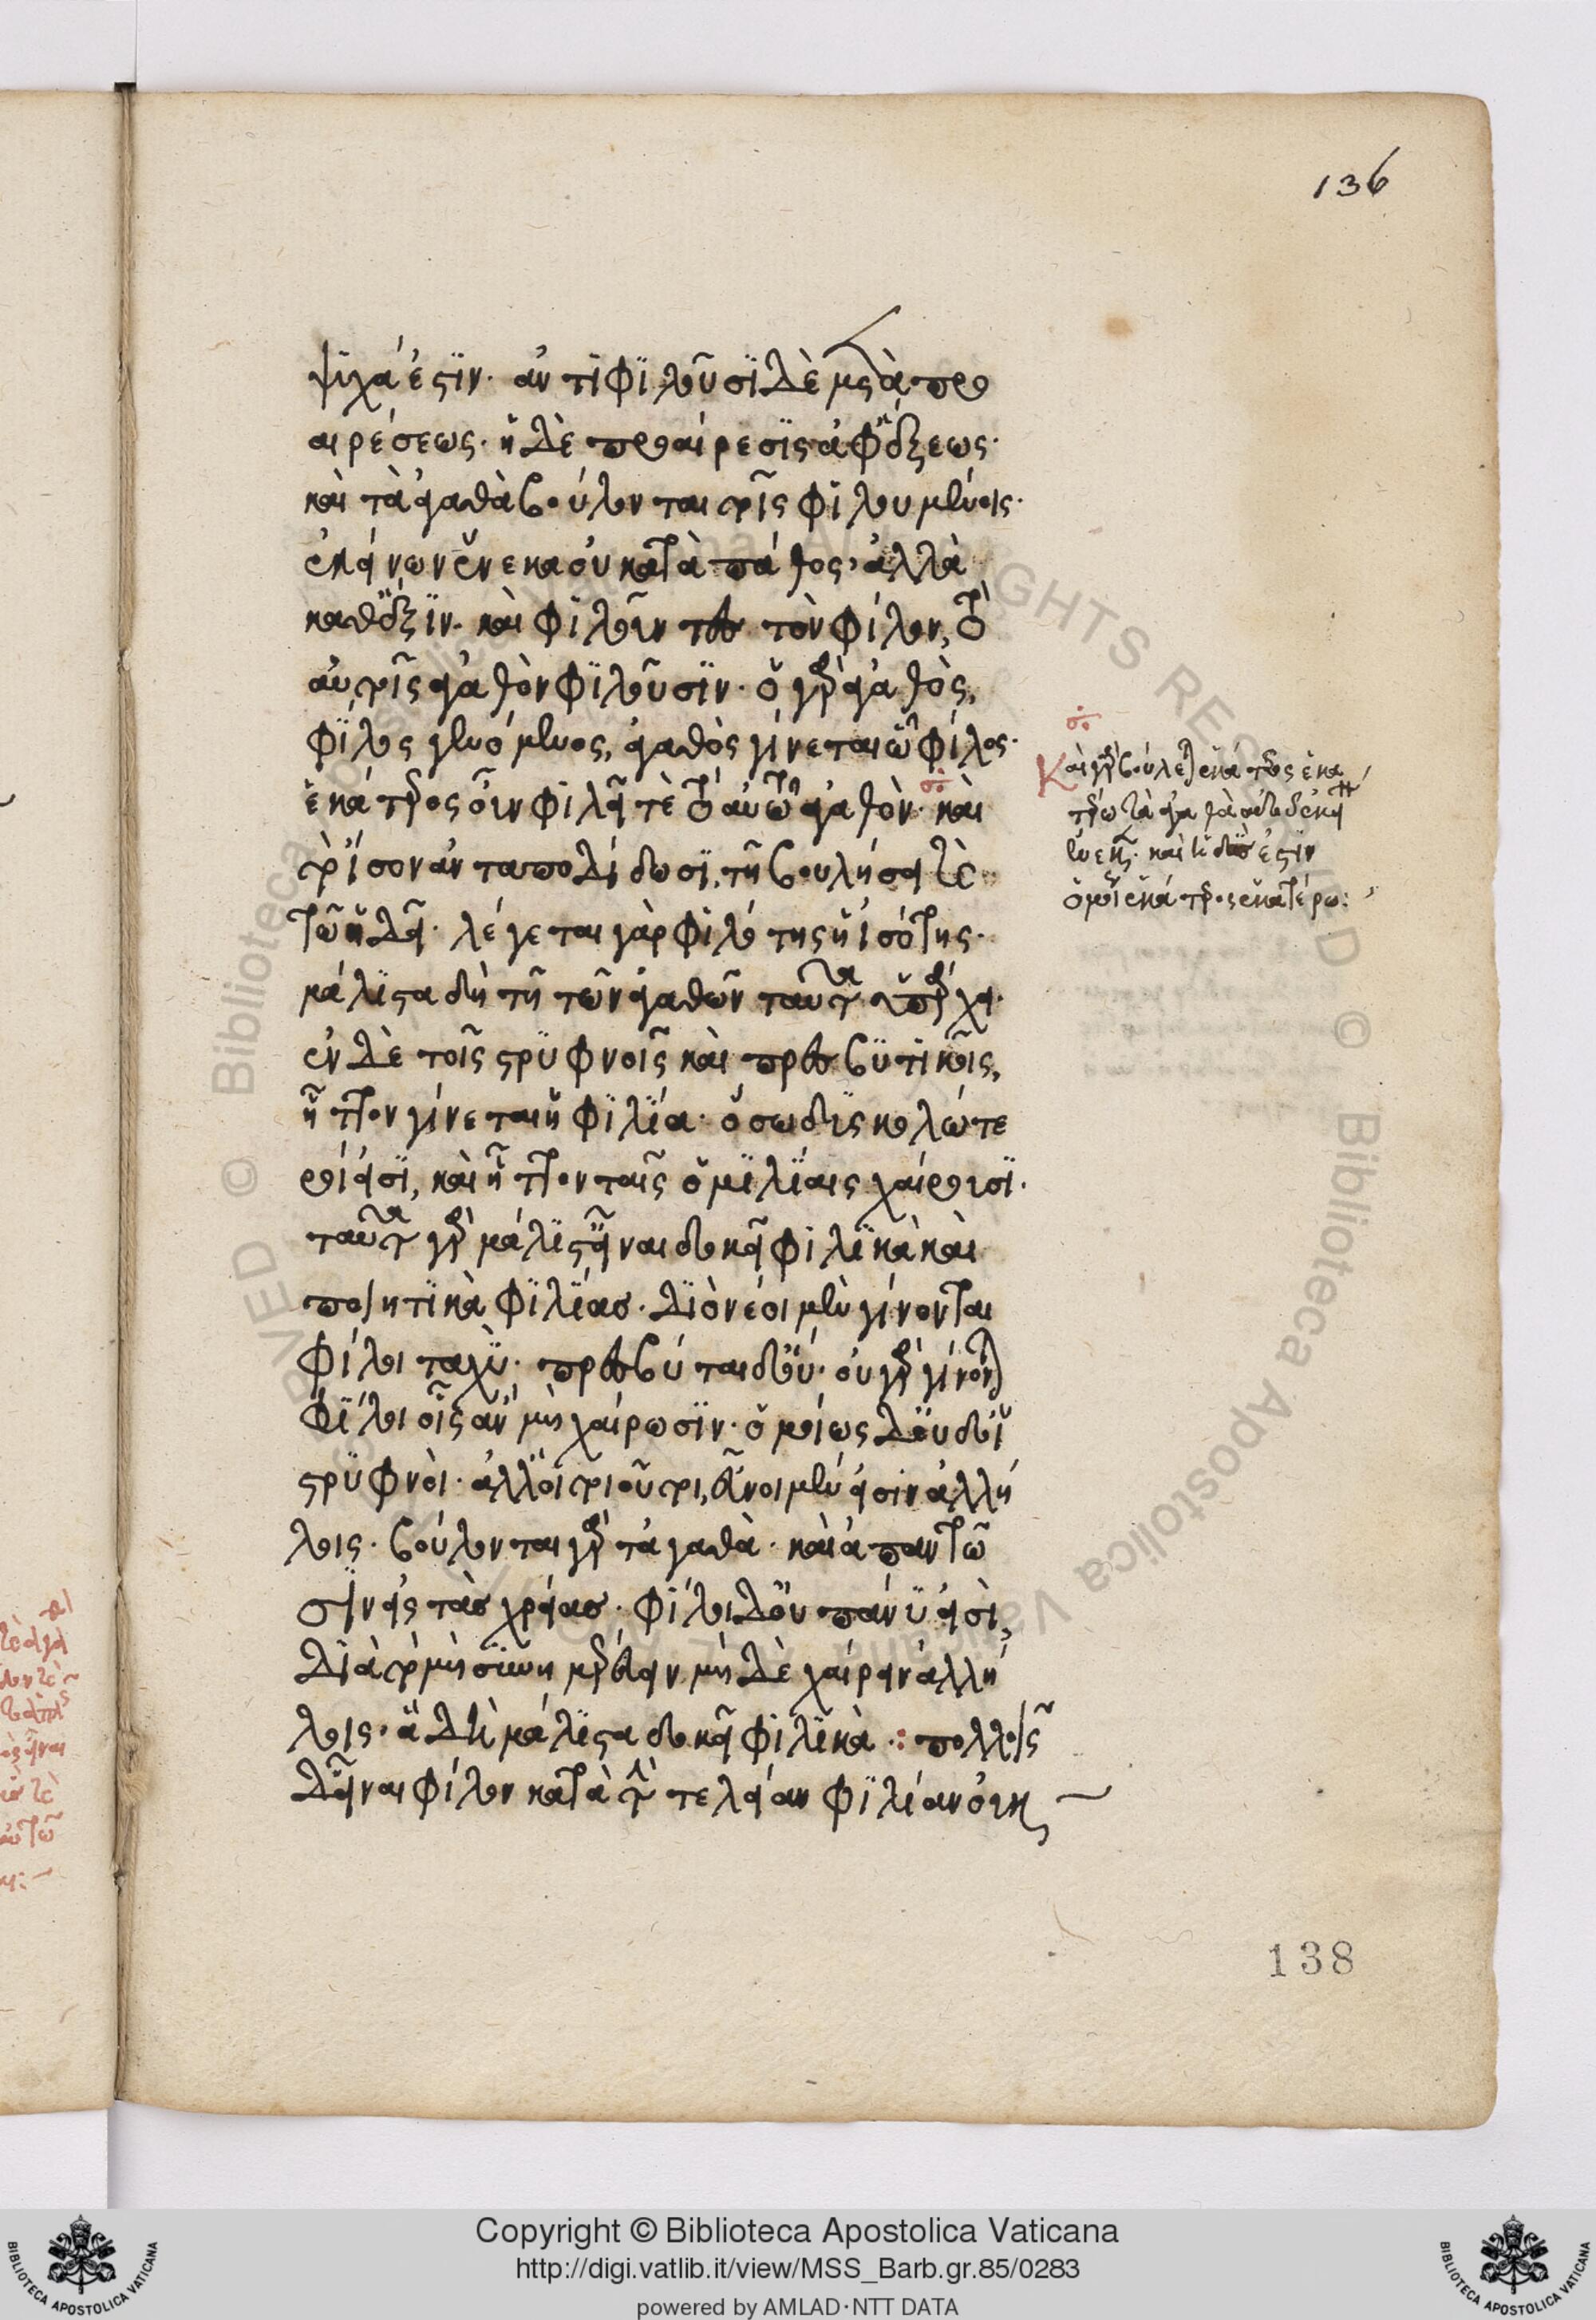 136
ψυχά ἐστιν· ἀντιφιλοῦσι δὲ μετὰ προ
αιρέσεως· ἡ δὲ προαίρεσις ἀφ' ἕξεως·
καὶ τἀγαθὰ βούλονται τοῖς φιλουμένοις·
ἐκείνων ἕνεκα οὐ κατὰ πάθος, ἀλλὰ
καθ' ἕξιν· καὶ φιλοῦντες τὸν φίλον, τὸ
αὐτοῖς ἀγαθὸν φιλοῦσιν· ὁ γὰρ ἀγαθὸς,
φίλος γενόμενος, ἀγαθὸς γίνεται ᾧ φίλος·
ἑκάτερος οὖν φιλεῖ τε τὸ αὑτῷ ἀγαθόν· καὶ
τὸ ἴσον ἀνταποδίδωσι, τῇ βουλήσει καὶ
τῷ εἴδει· λέγεται γὰρ φιλότης ἡ ἰσότης·
μάλιστα δὴ τῇ τῶν ἀγαθῶν ταῦτα ὑπάρχει·
ἐν δὲ τοῖς στρυφνοῖς καὶ πρεσβυτικοῖς,
ἧττον γίνεται ἡ φιλία· ὅσῳ δυσκολώτε
ροί εἰσι, καὶ ἧττον ταῖς ὁμιλίαις χαίρουσι·
ταῦτα γὰρ μάλιστ' εἶναι δοκεῖ φιλικὰ καὶ
ποιητικὰ φιλίας· διὸ νέοι μὲν γίνονται
φίλοι ταχὺ· πρεσβύται δ' οὔ· οὐ γὰρ γίνονται
φίλοι οἷς ἂν μὴ χαίρωσιν· ὁμοίως δ' οὐδ' οἱ
στρυφνοὶ· ἀλλ' οἱ τοιοῦτοι, εὖνοι μέν εἰσιν ἀλλή
λοις· βούλονται γὰρ τἀγαθὰ· καὶ ἀπαντῶ
σιν εἰς τὰς χρείας· φίλοι δ' οὐ πάνυ εἰσὶ,
διὰ τὸ μὴ συνημερεύειν μηδὲ χαίρειν ἀλλή
λοις· ἃ δὴ μάλιστα δοκεῖ φιλικὰ : πολλοῖς
δ' εἶναι φίλον κατὰ τὴν τελείαν φιλίαν οὐκ
Καὶ γὰρ βούλεται ἑκάτερος ἑκα
138
Copyright © Biblioteca Apostolica Vaticana
http://digi.vatlib.it/view/MSS_Barb.gr.85/0283
powered by AMLAD·NTT DATA